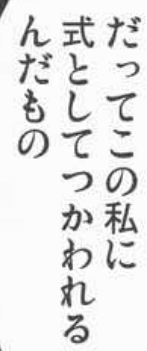 だってこの私に
式としてつかわれる
んだもの